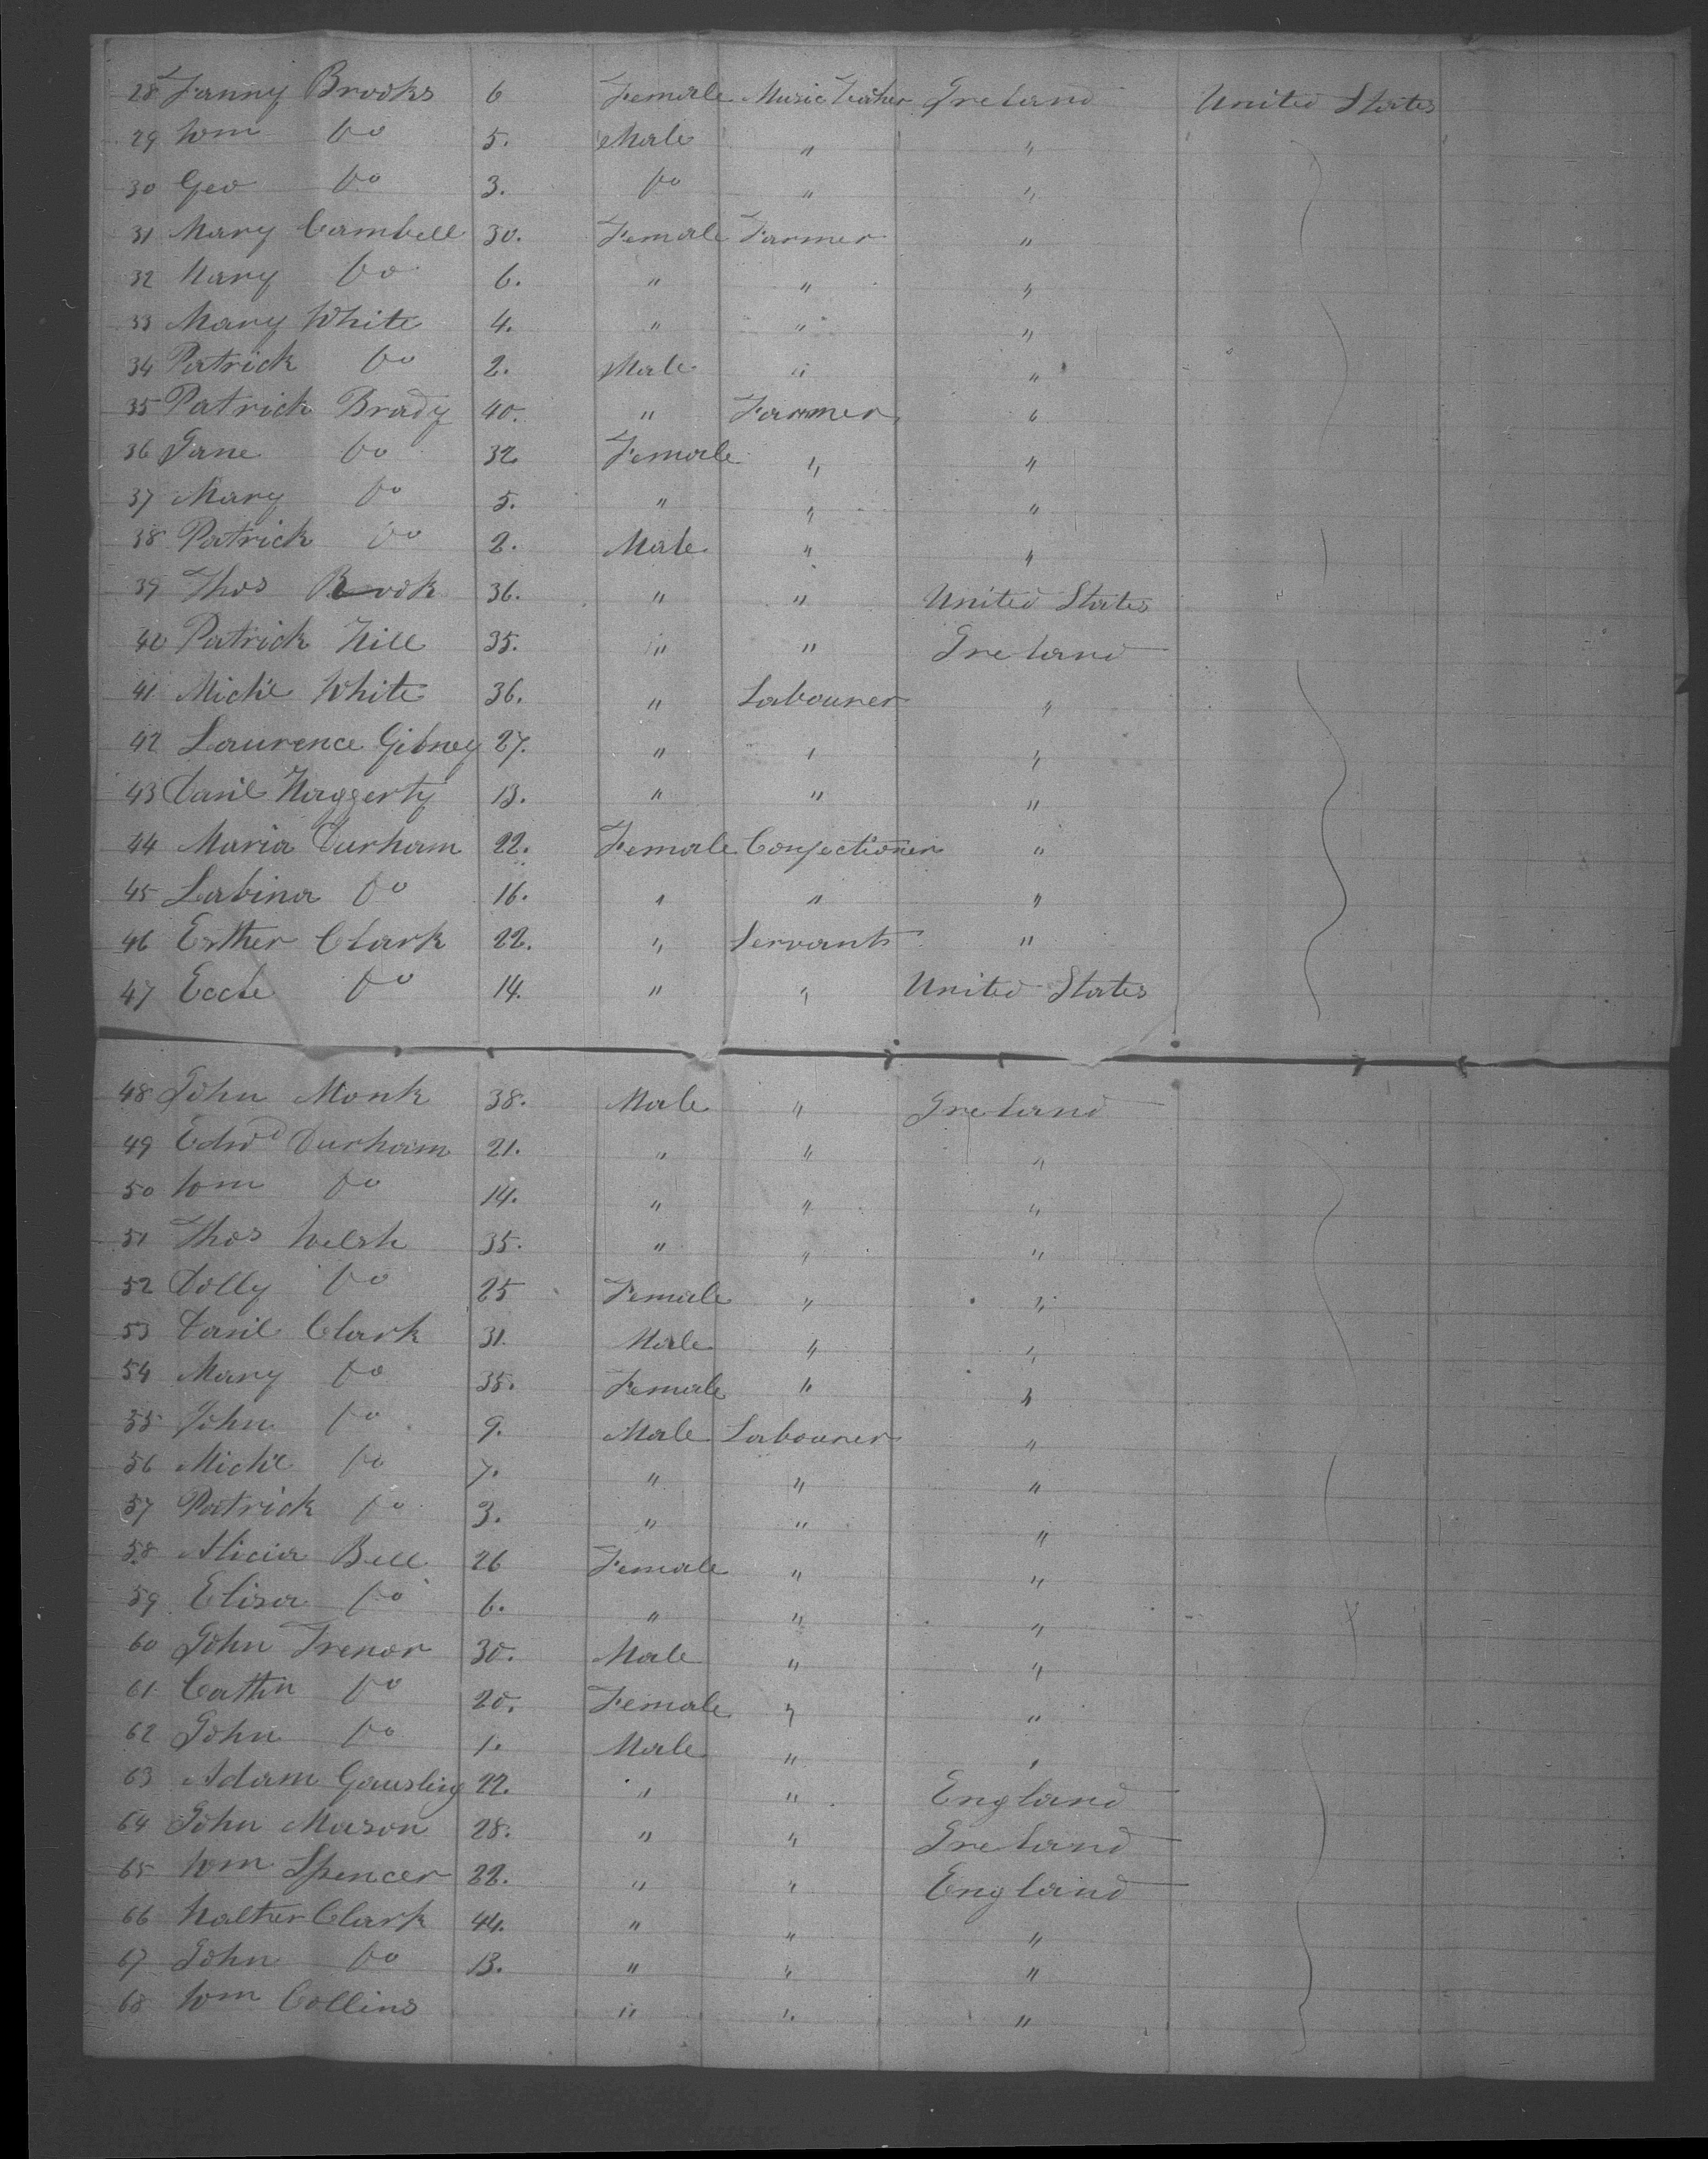 28 Fanny Brooks 6 Female Music Teacher Ireland United States
29 Wm Do 5. Male " "
30 Geo Do 3. Do " "
31 Mary Cambell 30. Female Farmer "
32 Mary Do 6. " " "
33 Mary White 4. " " "
34 Patrick Do 2. Male " "
35 Patrick Brady 40. " Farmer "
36 Jane Do 32 Female " "
37 Mary Do 5. " " "
38 Patrick Do 2. Male " "
39 Thos Brook 36. " " United States
40 Patrick Hill 35. " " Ireland
41 Michl White 36. " Labourer "
42 Laurence Gibney 27. " " "
43 Danl Haggerty 13. " " "
44 Maria Durham 22. Female Confectioner "
45 Sabina Do 16. " " "
46 Esther Clark 22. " Servants "
47 Do 14. " " United States
48 John Monk 38. Male " Ireland
49 Edwd Durham 21. " " "
50 Wm Do 14. " " "
51 Thos Welsh 35. " " "
52 Dolly Do 25 Female " "
53 Danl Clark 31. Male " "
54 Mary Do 35. Female " "
55 John Do 9. Male Labourer "
56 Michl Do 7. " " "
57 Patrick Do 3. " " "
58 Alicia Bell 26 Female " "
59 Elisa Do 6. " " "
60 John Trenor 30. Male " "
61 Cathn Do 20. Female " "
62 John Do 1. Male " "
63 Adam 22. " " England
64 John Mason 28. " " Ireland
65 Wm Spencer 22. " " England
66 Walter Clark 44. " " "
67 John Do 13. " " "
68 Wm Collins " " "